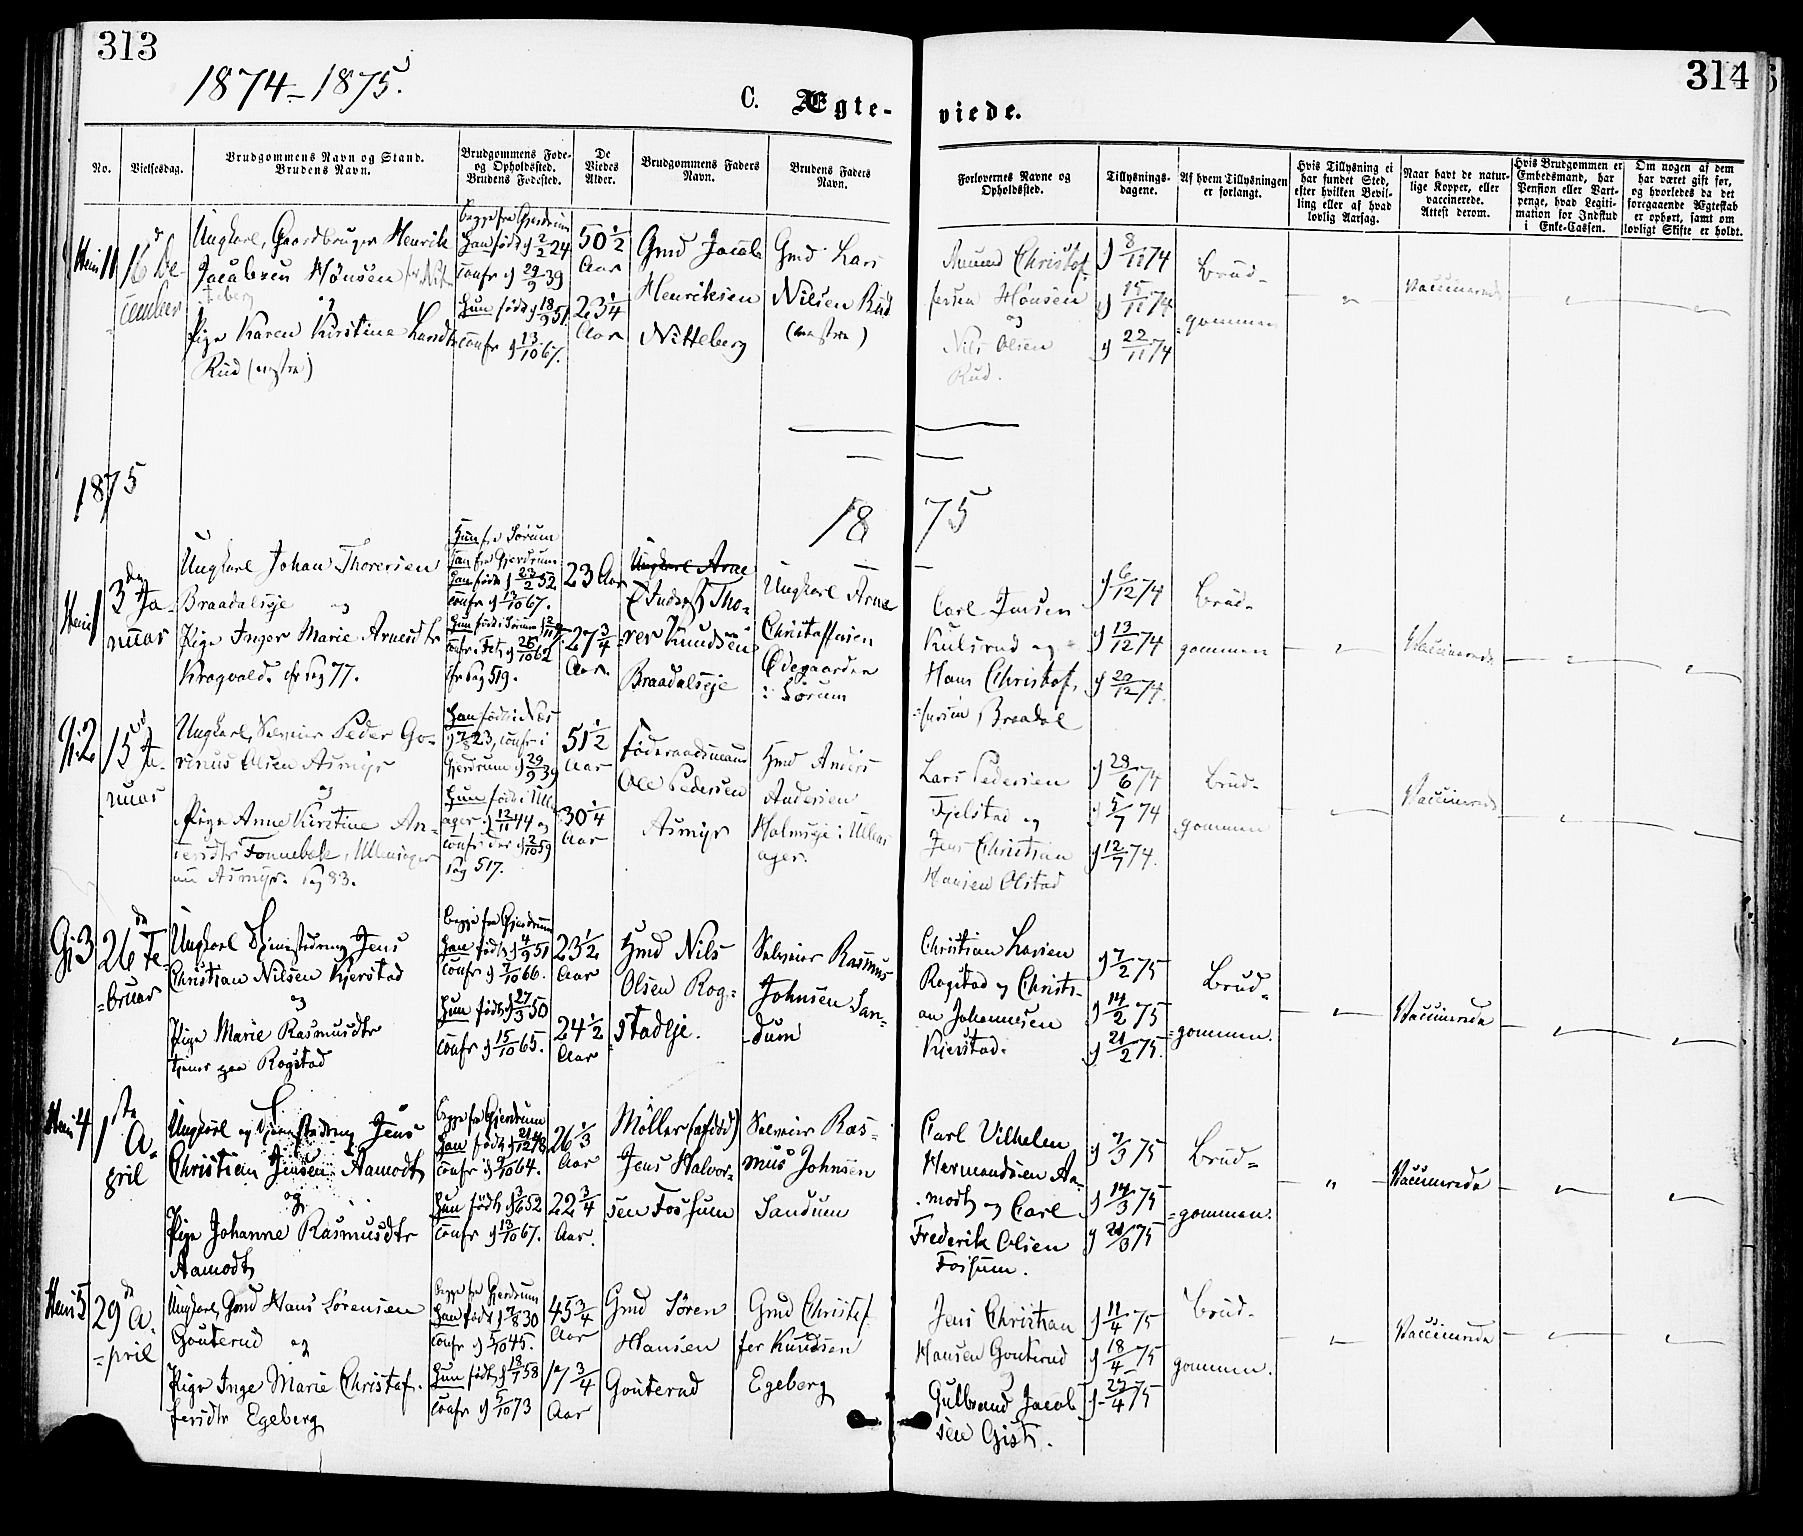 313
314
1874-1875.
C. Ægte-
viede.
No.
Vielsesdag.
Brudgommens Navn og Stand.
Brudens Navn.
Brudgommens Føde-
og Opholdssted.
Brudens Fødested.
De
Viedes
Alder.
Brudgommens Faders
Navn.
Brudens Faders
Navn.
Forlovernes Navne og
Opholdssted.
Tillysnings-
dagene.
Af hvem Tillysningen
er forlangt.
Hvis Tillysning ei
har fundet Sted,
efter hvilken Bevil-
ling eller af hvad
lovlig Aarsag.
Naar havt de natur-
lige Kopper, eller
vaccinerede.
Attest derom.
Hvis Brudgommen er
Embedsmand, har
Pension eller Vart-
penge, hvad Legiti-
mation for Indskud
i Enke-Cassen.
Om nogen af dem
har været gift før,
og hvorledes da det
foregaaende Ægteskab
er ophørt, samt om
lovligt Skifte er holdt.
11
16 De-
cember
Ungkarl, Gaardbruger Henrik
Jacobsen Hønsen
og
Pige Karen Kirstine Larsdtr
Rud
Begge fra Gjerdrum
Han født d 2/2 24
Conf d 29/9 39
Hun født d 18/9 51
Conf d 13/10 67.
50 1/2
Aar
23 1/4
Aar
Gmd Jacob
Henriksen
Nitteberg
Gmd Lars
Nilsen Rud
Amund Christof-
fersen Hønsen
og
Nils Olsen
Rud.
d 8/11 74
d 15/11 74
d 22/11 74
Brud-
gommen
Vaccinerede
1875
18 75
1
3 Ja-
nuar
Ungkarl Johan Thoresen
Braadalseje og
Pige Inger Marie Arnesdtr
Kragvold. cfr Pag 77.
Hun fra Sørum
Han fra Gjerdrum
Han født d 23/2 52
Conf d 13/10 67.
Hun født i Sørum
Conf i Fet d 26/10 62
cfr Pag 519.
23 Aar
27 3/4
Aar.
Ungkarl Arne
Tho-
res Knudsen
Braadalseje
Ungkarl Arne
Christoffersen
Ødegaarden
i Sørum
Carl Jensen
Kulsrud og
Hans Christof-
fersen Braadal
d 6/12 74
d 13/12 74
d 20/12 74.
Brud-
gommen
Vaccinerede
2
15 Ja-
nuar
Ungkarl, Selveier Peder Go-
rinus Olsen Asmyr
og
Pige Anne Kirstine An-
dersdtr Fonnebæk, Ullensager
nu Asmyr. Pag 83.
Han født i Næs
23, Conf i
Gjerdrum d 29/9 39
Hun født i Ull-
ager d 12/11 44 og
Conf der d 2/10 59
Pag 517.
51 1/2
Aar
30 1/4
Aar
Føderaadsmand
Ole Pedersen
Asmyr
Hmd Anders
Andersen
Holmseje i Ullens-
ager.
Lars Pedersen
Fjelstad og
Jens Christian
Hansen Olstad
d 28/6 74
d 5/7 74
d 12/7 74.
Brud-
gommen
Vaccinerede
Gj 3
26 Fe-
bruar
Ungkarl Tjenestedreng Jens
Christian Nilsen Kjerstad
og
Pige Marie Rasmusdtr
tjener paa Rogstad
Begge fra Gjerdrum
Han født d 4/9 51
Conf d 7/10 66.
Hun født d 27/3 50
Conf d 15/10 65.
23 1/2
Aar
24 1/2
Aar
Hmd Nils
Olsen Rog-
stadeje.
Selveier Rasmus
Johnsen San-
dum
Christian Larsen
Rogstad og Christi-
an Johannesen
Kjerstad.
d 7/2 75
d 14/2 75
d 21/2 75.
Brud-
gommen.
Vaccinerede
4
1ste A-
pril
Ungkarl og Tjenestedreng Jens
Christian Jensen Aamodt
og
Pige Johanne Rasmusdtr
Aamodt
Begge fra Gjerdrum
Han født d 21/12 48
Conf d 9/10 64.
Hun født d 3/6 52
Conf d 13/10 67.
26 1/3
Aar
22 3/4
Aar.
Møller (afdød)
Jens Halvor-
sen Fossum
Selveier Ras-
mus Johnsen
Sandum
Carl Vilhelm
Hermandsen Aa-
modt og Carl
Frederik Olsen
Fossum.
d 7/3 75
d 14/3 75
d 21/3 75
Brud-
gommen.
Vaccinerede
5
29 A-
pril
Ungkarl, Gmd Hans Sørensen
Gouterud og
Pige Inge Marie Christof-
fersdtr Egeberg
Begge fra Gjerdrum
Han født d 7/8 30
Conf d 5/10 45.
Hun født d 18/7 58
Conf d 5/10 73
45 3/4
Aar
17 3/4
Aar
Gmd Søren
Hansen
Gouterud
Gmd Christof-
fer Knudsen
Egeberg
Jens Christian
Hansen Gouterud
og
Gulbrand Jacob-
sen Gist.
d 11/4 75
d 18/4 75
d 25/4 75
Brud-
gommen.
Vaccinerede